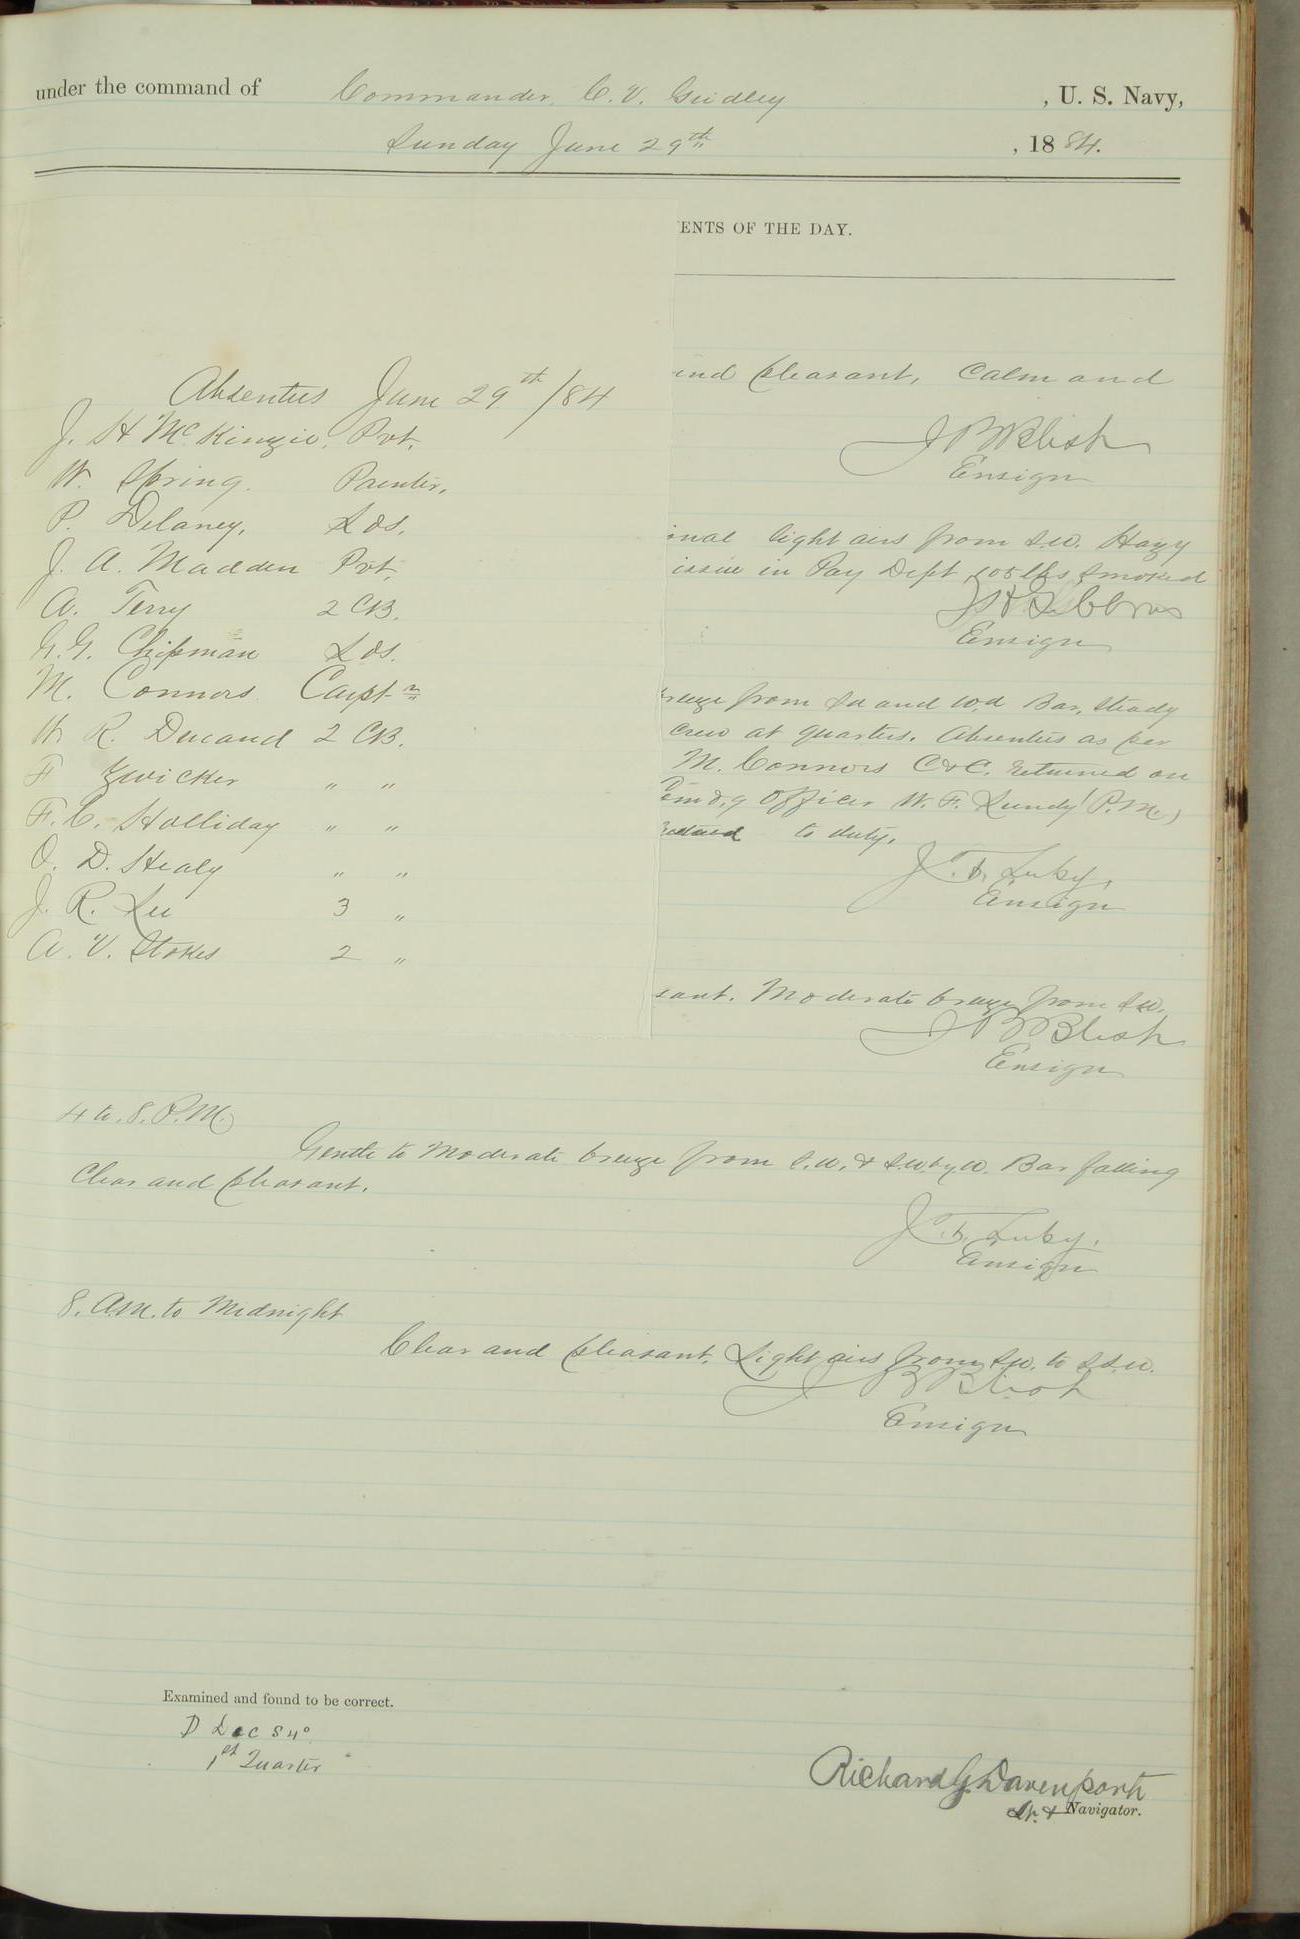 under the command of Commander C. V. Gridley , U. S. Navy,
Sunday June 29th , 1884.
ENTS OF THE DAY.
Absentees June 29th /84
J. H McKinzie, Pvt.
W. Spring. Painter.
P. Delaney, Lds.
J. A. Madden Pvt.
A. Terry 2 CB.
G. G. Chipman Lds.
M. Connors Carpt
W R. Durand 2 CB.
F Zwicker " "
F. C. Holliday " "
O. D. Healy " "
J. R. Lee 3 "
A. V. Stokes 2 "
and pleasant, Calm and
J B Blish
Ensign
onal light airs from S.W. Hazy
issue in Pay Dept 105 lbs smoked
J H Gibbons
Ensign
from Sd and Wd Bar, steady
crew at quarters. Absentees as per
M. Connors returned on
Officer W. F. Lundy (P.M.)
to duty.
J. F. Luby.
Ensign
sant. Moderate breeze from SW.
J B Blish
Ensign
4 to 8. P.M.
Gentle to Moderate breeze from S.W. & S.W. by W. Bar falling
Clear and pleasant.
J. F. Luby.
Ensign
8. A.M. to Midnight
Clear and pleasant. Light airs from SW. to S.S.W.
J B Blish
Ensign
Examined and found to be correct.
D Dec 84°
1st Quarter
Richard G. Davenport
Lt. & Navigator.